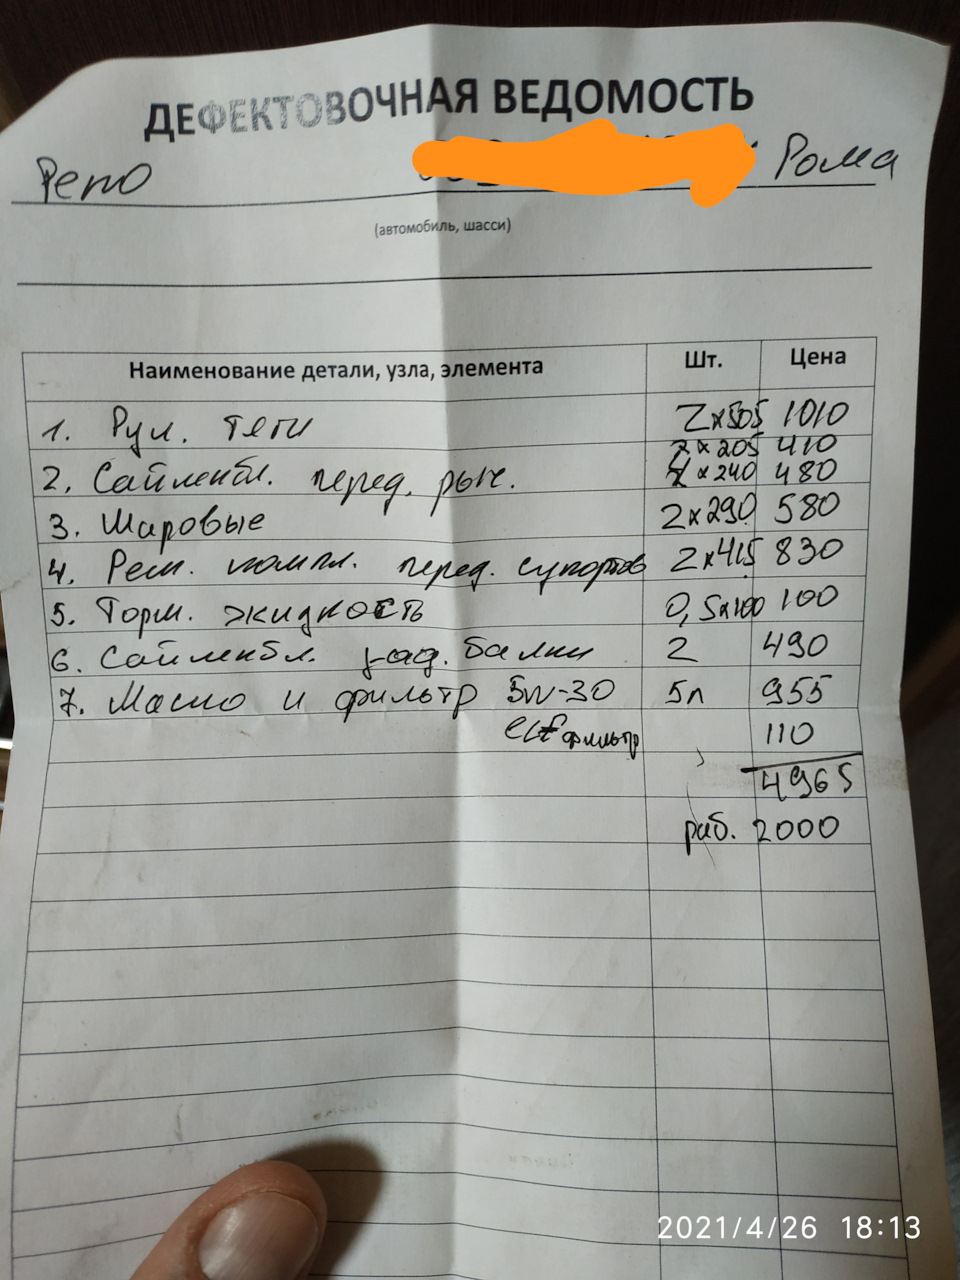 ДЕФЕКТОВОЧНАЯ ВЕДОМОСТЬ
Рено Рома
(автомобиль, шасси)
Наименование детали, узла, элемента Шт. Цена
1. Рул. тяги 2x505 1010
2x205 410
2. Сайлентбл. перед. рыч. 2x240 480
3. Шаровые 2x290 580
4. Рем. компл. перед. супортов 2x415 830
5. Торм. жидкость 0,5x200 100
6. Сайлентбл. зад. балки 2 490
7. Масло и фильтр 5w-30 5л 955
elf фильтр 110
4965
раб. 2000
2021/4/26 18:13